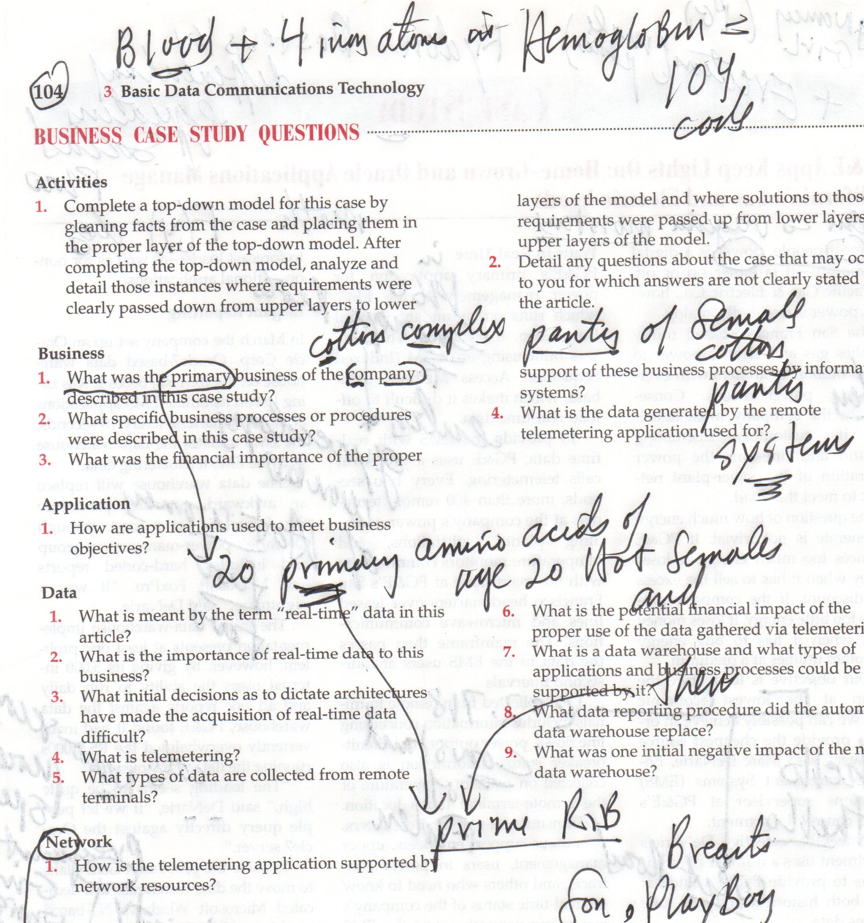 Blood + 4 iron atoms in Hemoglobin =
104
code
104 3 Basic Data Communications Technology
BUSINESS CASE STUDY QUESTIONS
Activities
1. Complete a top-down model for this case by
gleaning facts from the case and placing them in
the proper layer of the top-down model. After
completing the top-down model, analyze and
detail those instances where requirements were
clearly passed down from upper layers to lower
layers of the model and where solutions to those
requirements were passed up from lower layers
upper layers of the model.
2. Detail any questions about the case that may oc
to you for which answers are not clearly stated
the article.
cotton complex panty of female
cotton
panties
systems
Business
1. What was the primary business of the company
described in this case study?
2. What specific business processes or procedures
were described in this case study?
3. What was the financial importance of the proper
support of these business processes by informa
systems?
4. What is the data generated by the remote
telemetering application used for?
Application
1. How are applications used to meet business
objectives?
20 primary amino acids of
age 20 Hot females
and
their
Data
1. What is meant by the term “real-time” data in this
article?
2. What is the importance of real-time data to this
business?
3. What initial decisions as to dictate architectures
have made the acquisition of real-time data
difficult?
4. What is telemetering?
5. What types of data are collected from remote
terminals?
6. What is the potential financial impact of the
proper use of the data gathered via telemeteri
7. What is a data warehouse and what types of
applications and business processes could be
supported by it?
8. What data reporting procedure did the autom
data warehouse replace?
9. What was one initial negative impact of the n
data warehouse?
prime RIB
Breasts
for PlayBoy
Network
1. How is the telemetering application supported by
network resources?